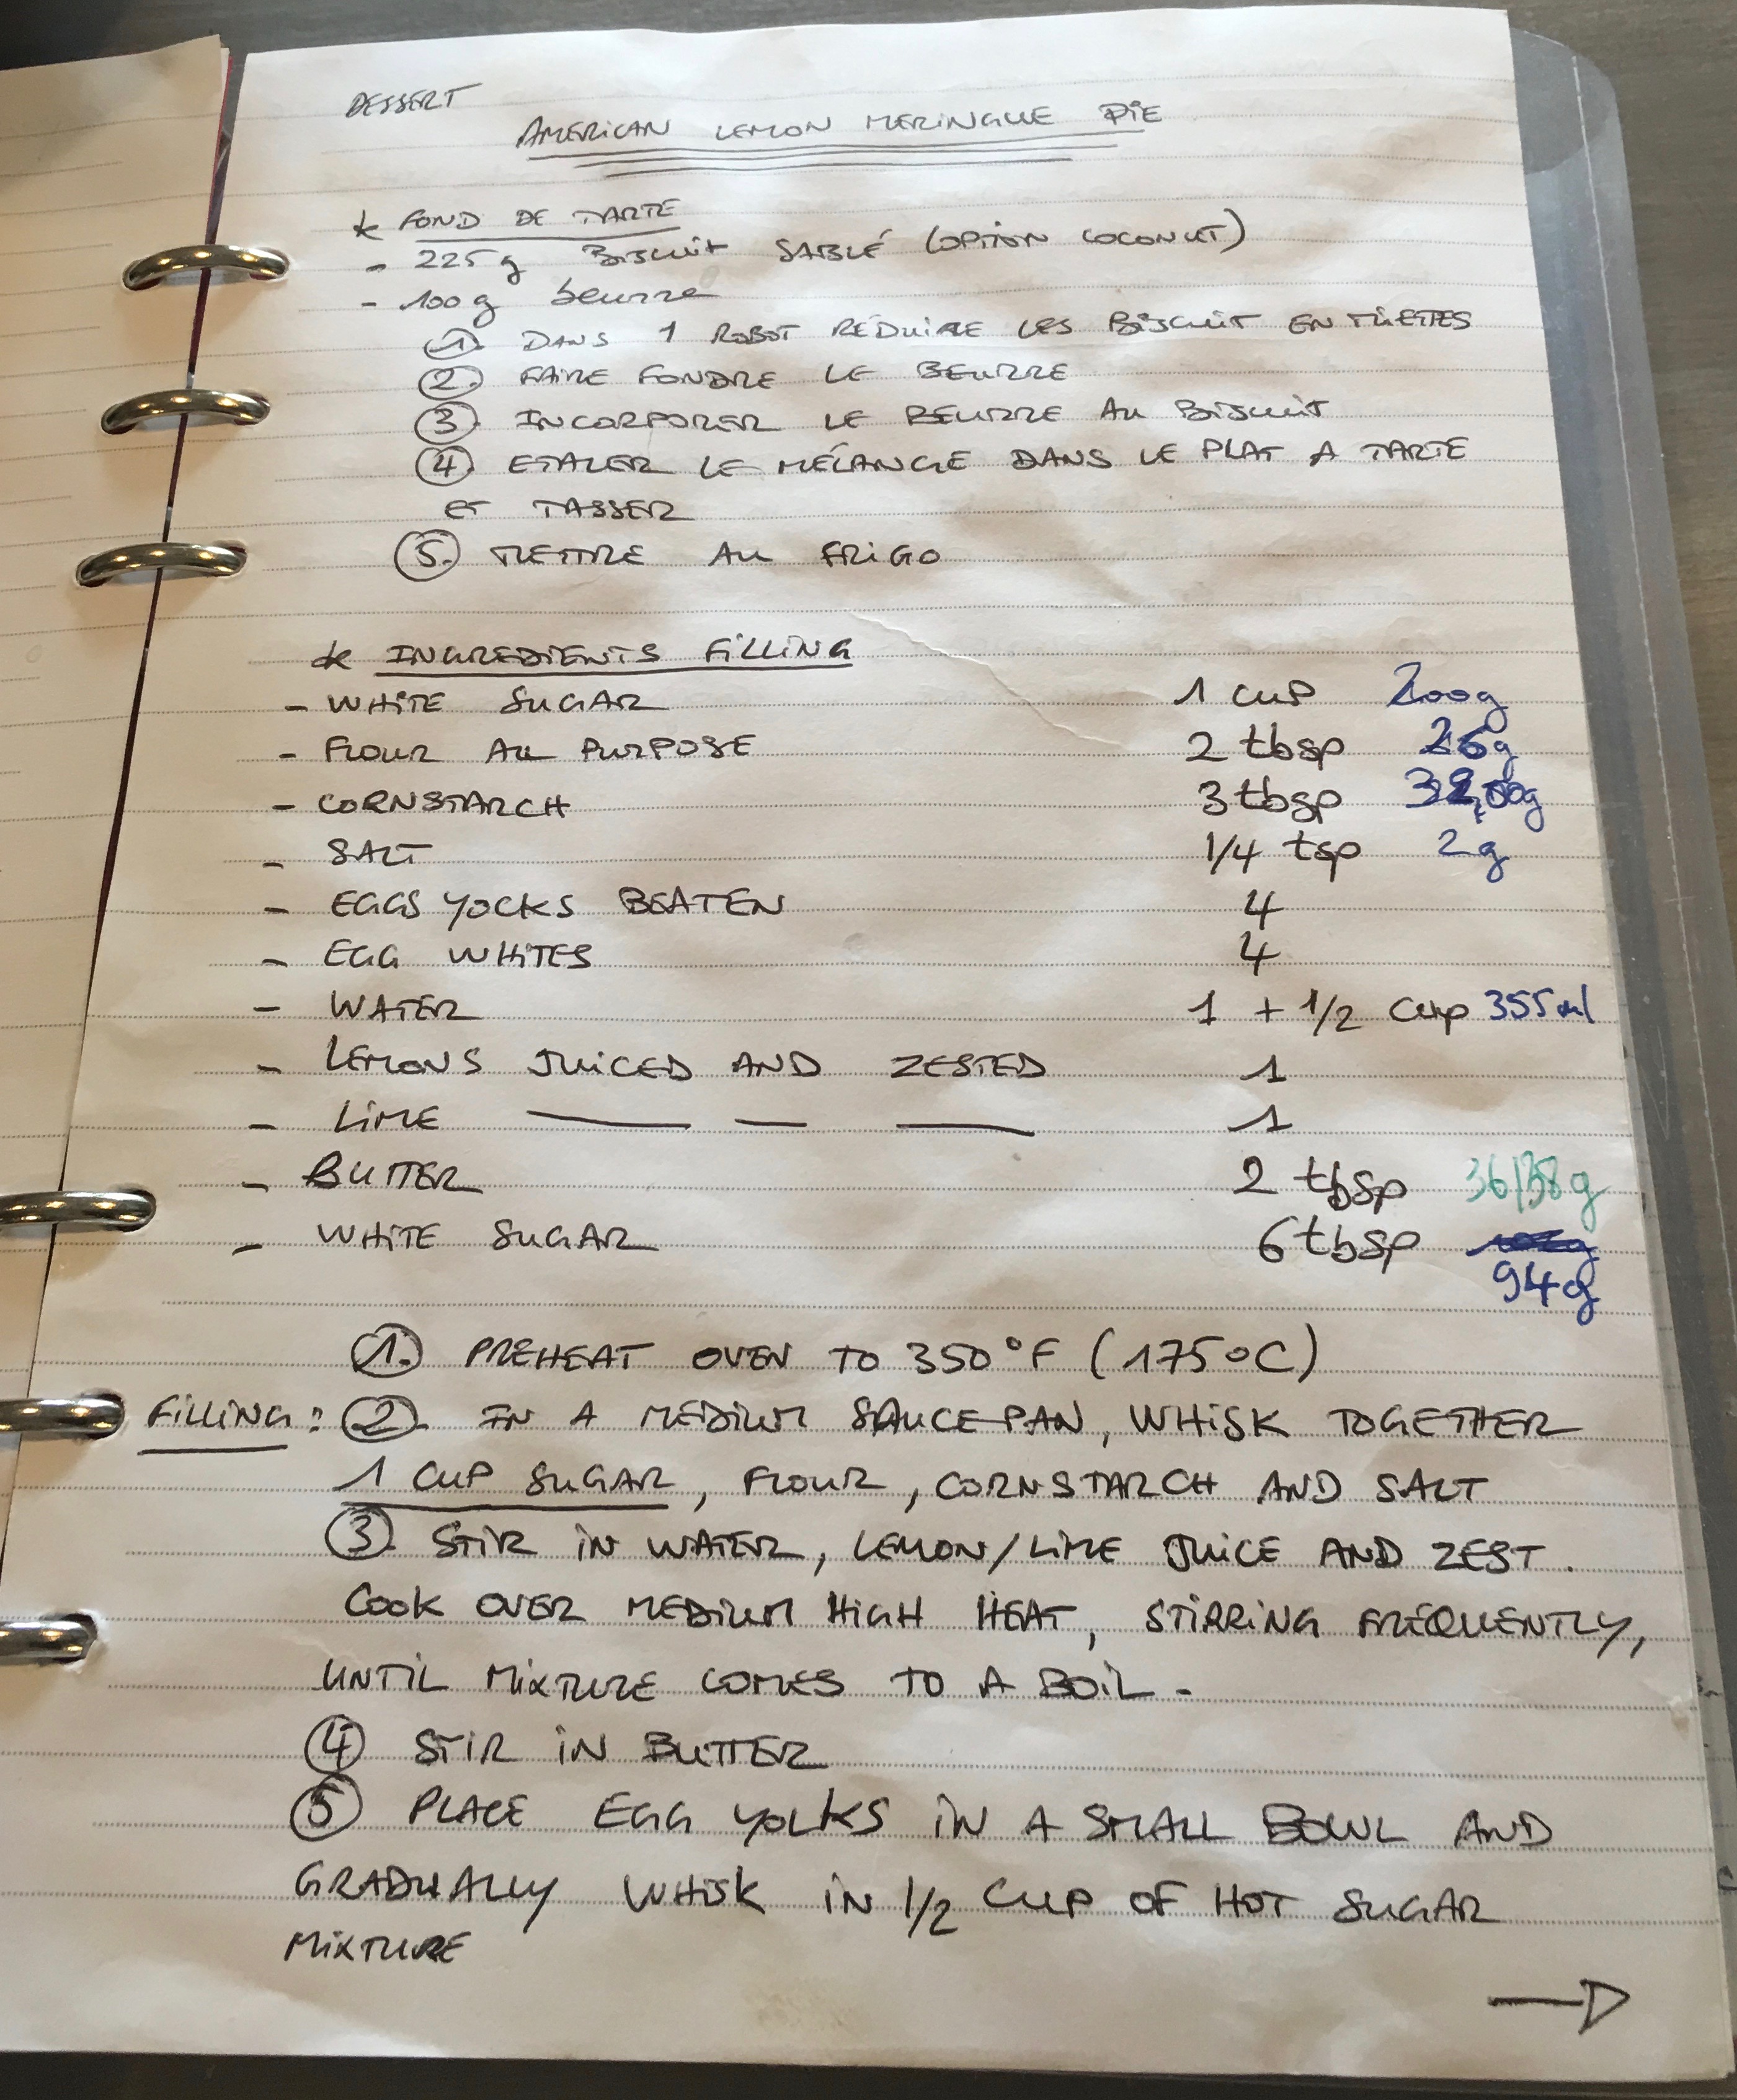 DESSERT
AMERICAN LEMON MERINGUE PIE
* FOND DE TARTE
- 225 g Biscuit SABLÉ (OPTION COCONUT)
- 100 g beurre
1. DANS 1 ROBOT RÉDUIRE LES BISCUIT EN MIETTES
2. FAIRE FONDRE LE BEURRE
3. INCORPORER LE BEURRE AU BISCUIT
4. ETALER LE MÉLANGE DANS LE PLAT A TARTE
ET TASSER
5. METTRE AU FRIGO
* INGREDIENTS FILLING
- WHITE SUGAR 1 CUP 200g
- FLOUR ALL PURPOSE 2 tbsp 26g
- CORNSTARCH 3 tbsp
- SALT 1/4 tsp 2g
- EGGS YOCKS BEATEN 4
- EGG WHITES 4
- WATER 1 + 1/2 Cup 355ml
- LEMONS JUICED AND ZESTED 1
- LIME — — — 1
- BUTTER 2 tbsp 36/38g
- WHITE SUGAR 6 tbsp
94g
1. PREHEAT OVEN TO 350°F (175°C)
FILLING: 2. IN A MEDIUM SAUCEPAN, WHISK TOGETHER
1 CUP SUGAR, FLOUR, CORNSTARCH AND SALT
3. STIR IN WATER, LEMON/LIME JUICE AND ZEST.
COOK OVER MEDIUM HIGH HEAT, STIRRING FREQUENTLY,
UNTIL MIXTURE COMES TO A BOIL -
4 STIR IN BUTTER
5 PLACE EGG YOLKS IN A SMALL BOWL AND
GRADUALLY WHISK IN 1/2 CUP OF HOT SUGAR
MIXTURE